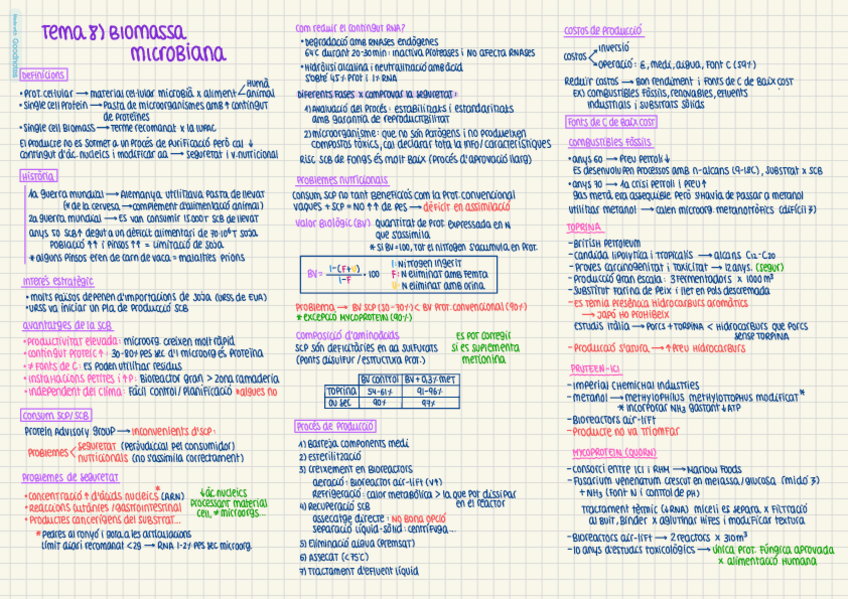 Tema 8) Biomassa
microbiana
Definicions
• Prot. cel·lular → material cel·lular microbià x aliment humà
animal
• Single Cell Protein → Pasta de microorganismes amb ↑ contingut
de proteïnes
• Single cell Biomass → Terme recomanat x la IUPAC
El producte no és sormer a un Procés de Purificació però cal ↓
contingut d'àc. nucleics i modificar aa → seguretat i v. nutricional
Història
1a Guerra mundial → Alemanya utilitzava Pasta de llevat
(* de la cervesa → complement d'alimentació animal)
2a guerra mundial → Es van consumir 15.000T SCB de llevat
anys 70 SCB ↑ degut a un dèficit alimentari de 30·10⁶ T soja
Població ↑↑ i Pinsos ↑↑ = Limitació de soja
* alguns Pinsos eren de carn de vaca = malalties prions
Interès estratègic
• molts països depenen d'importacions de soja (URSS de EUA)
• URSS va iniciar un pla de producció SCB
avantatges de la SCB
• Productivitat elevada: microorg. creixen molt ràpid
• contingut proteic ↑: 30-80% pes sec d'1 microorg és Proteïna
• ≠ Fonts de C: es poden utilitzar residus
• Instal·lacions petites i ↑P: Bioreactor gran > zona ramaderia
• Independent del clima: Fàcil control/Planificació *algues no
Consum SCP/SCB
Protein Advisory Group → inconvenients d'SCP:
Problemes
Seguretat (Perjudicial pel consumidor)
nutricionals (no s'assimila correctament)
Problemes de seguretat
• concentració ↑ d'àcids nucleics * (ARN)
• Reaccions cutànies / gastrointestinal
• Productes cancerígens del substrat...
↓ àc nucleics
Processant material
cel, ≠ microorgs...
* pedres al ronyó i gota a les articulacions
Límit diari recomanat <2g → RNA 1-2% pes sec microorg.
Com reduir el contingut RNA?
• Degradació amb RNAses endògenes
64ºC durant 20-30 min: inactiva proteases i no afecta RNAses
• Hidròlisi alcalina i neutralització amb àcid
S'obté 45% Prot i 1% RNA
Diferents fases x comprovar la seguretat:
1) Avaluació del Procés: estabilitat i estandaritats
amb garantia de reproductibilitat
2) microorganisme: que no són Patògens i no produeixen
compostos tòxics, cal declarar tota la info/característiques
Risc SCB de Fongs és molt Baix (Procés d'aprovació llarg)
Problemes nutricionals
Consum SCP no tant beneficiós com la Prot. convencional
vaques + SCP = NO ↑↑ de pes → dèficit en assimilació
valor Biològic (BV) Quantitat de Prot. expressada en N
que s'assimila
* Si BV=100, tot el nitrogen s'acumula en Prot.
BV = I-(F+U) / I-F · 100
I: Nitrogen ingerit
F: N eliminat amb femta
U: N eliminat amb orina
Problema → BV SCP (30-70%) < BV Prot. convencional (90%)
* excepció mycoprotein (90%)
Composició d'aminoàcids
SCP són deficitàries en aa sulfurats
(Ponts disulfur / estructura Prot.)
Es pot corregir
si es suplementa
metionina
BV control BV + 0,3% met
Toprina 54-61% 91-96%
Ou sec 90% 97%
Procés de Producció
1) Barreja components medi
2) Esterilització
3) Creixement en Bioreactors
aeració: Bioreactor air-lift (V↑)
Refrigeració: calor metabòlica > la que pot dissipar
en el reactor
4) Recuperació SCB
assecatge directe: no bona opció
separació líquid-sòlid: centrífuga...
5) Eliminació aigua (Premsat)
6) Assecat (<75ºC)
7) Tractament d'efluent líquid
Costos de producció
costos
inversió
operació: E, medi, aigua, Font C (59%)
Reduir costos → Bon rendiment i Fonts de C de Baix cost
Ex) combustibles Fòssils, renovables, efluents
industrials i substrats sòlids
Fonts de C de Baix cost
combustibles fòssils
• anys 60 → Preu Petroli ↓
Es desenvolupen Processos amb n-alcans (9-18C), substrat x SCB
• anys 70 → 1a crisi petroli i Preu ↑
Gas metà era assequible però s'havia de passar a metanol
utilitzar metanol → calen microorg. metanotròfics (difícil 3)
Toprina
- British Petroleum
- Candida lipolytica i tropicalis → alcans C12-C20
- Proves carcinogenitat i toxicitat → 12 anys. (segur)
- Producció gran escala: 3 fermentadors x 1000 m³
- Substitut farina de peix i llet en pols descremada
- Es temia presència hidrocarburs aromàtics
→ Japó ho prohibeix
Estudis Itàlia → Porcs + toprina < hidrocarburs que porcs
sense toprina
- Producció s'atura → ↑ Preu hidrocarburs
Pruteen-ICI
- Imperial Chemichal Industries
- metanol → Methylophilus methylotrophus modificat*
* incorporar NH₃ gastant ↓ ATP
- Bioreactors air-lift
- Producte no va triomfar
Mycoprotein (Quorn)
- consorci entre ICI i RHM → Marlow Foods
- Fusarium venenatum crescut en melassa/glucosa (midó 3)
+ NH₃ (Font N i control de pH)
Tractament tèrmic (↓RNA) miceli es separa x Filtració
al buit, Binder x aglutinar hifes i modificar textura
- Bioreactors air-lift → 2 reactors x 310m³
- 10 anys d'estudis toxicològics → única prot. fúngica aprovada
x alimentació humana